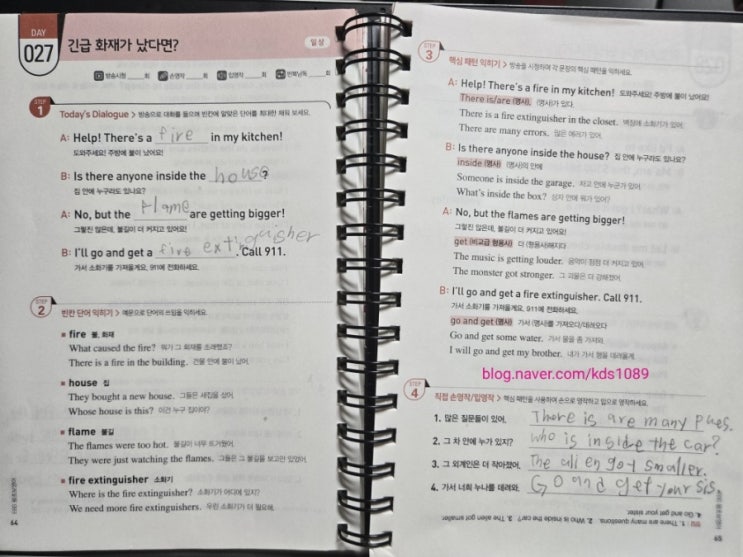 DAY
027
긴급 화재가 났다면?
일상
방송시청 ___회 손영작 ___회 입영작 ___회 반복낭독 ___회
STEP 1
Today's Dialogue > 방송으로 대화를 들으며 빈칸에 알맞은 단어를 최대한 채워 보세요.
A: Help! There's a fire in my kitchen!
도와주세요! 주방에 불이 났어요!
B: Is there anyone inside the house?
집 안에 누구라도 있나요?
A: No, but the flame are getting bigger!
그렇진 않은데, 불길이 더 커지고 있어요!
B: I'll go and get a fire extinguisher. Call 911.
가서 소화기를 가져올게요. 911에 전화하세요.
STEP 2
빈칸 단어 익히기 > 예문으로 단어의 쓰임을 익히세요.
fire 불, 화재
What caused the fire? 뭐가 그 화재를 초래했죠?
There is a fire in the building. 건물 안에 불이 났어.
house 집
They bought a new house. 그들은 새집을 샀어.
Whose house is this? 이건 누구 집이야?
flame 불길
The flames were too hot. 불길이 너무 뜨거웠어.
They were just watching the flames. 그들은 그 불길을 보고만 있었어.
fire extinguisher 소화기
Where is the fire extinguisher? 소화기가 어디에 있지?
We need more fire extinguishers. 우린 소화기가 더 필요해.
64
STEP 3
핵심 패턴 익히기 > 방송을 시청하며 각 문장의 핵심 패턴을 익히세요.
A: Help! There's a fire in my kitchen! 도와주세요! 주방에 불이 났어요!
There is/are (명사). (명사)가 있다.
There is a fire extinguisher in the closet. 벽장에 소화기가 있어.
There are many errors. 많은 에러가 있어.
B: Is there anyone inside the house? 집 안에 누구라도 있나요?
inside (명사) (명사)의 안에
Someone is inside the garage. 차고 안에 누군가 있어.
What's inside the box? 상자 안에 뭐가 있어?
A: No, but the flames are getting bigger!
그렇진 않은데, 불길이 더 커지고 있어요!
get (비교급 형용사) 더 (형용사)해지다
The music is getting louder. 음악이 점점 더 커지고 있어.
The monster got stronger. 그 괴물은 더 강해졌어.
B: I'll go and get a fire extinguisher. Call 911.
가서 소화기를 가져올게요. 911에 전화하세요.
go and get (명사) 가서 (명사)를 가져오다/데려오다
Go and get some water. 가서 물을 좀 가져와.
I will go and get my brother. 내가 가서 형을 데려올게.
blog.naver.com/kds1089
STEP 4
직접 손영작/입영작 > 핵심 패턴을 사용하며 손으로 영작하고 입으로 영작하세요.
1. 많은 질문들이 있어. There is are many ques.
2. 그 차 안에 누가 있지? Who is inside the car?
3. 그 외계인은 더 작아졌어. The alien got smaller.
4. 가서 너희 누나를 데려와. Go and get your sis.
1. There are many questions. 2. Who is inside the car? 3. The alien got smaller.
4. Go and get your sister.
65